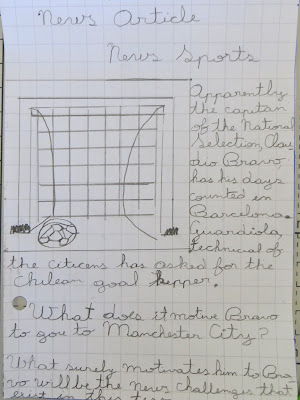 News Article
News Sports
Apparently
the capitan
of the National
Selection, Clau
dio Bravo
has his days
counted in
Barcelona.
Guardiola,
Technical of
the citicens has asked for the
Chilean goal kepper.
What does it motive Bravo
to gou to Manchester City?
What surely motivates him to Bra
vo will be the news challenges that
exist in this team